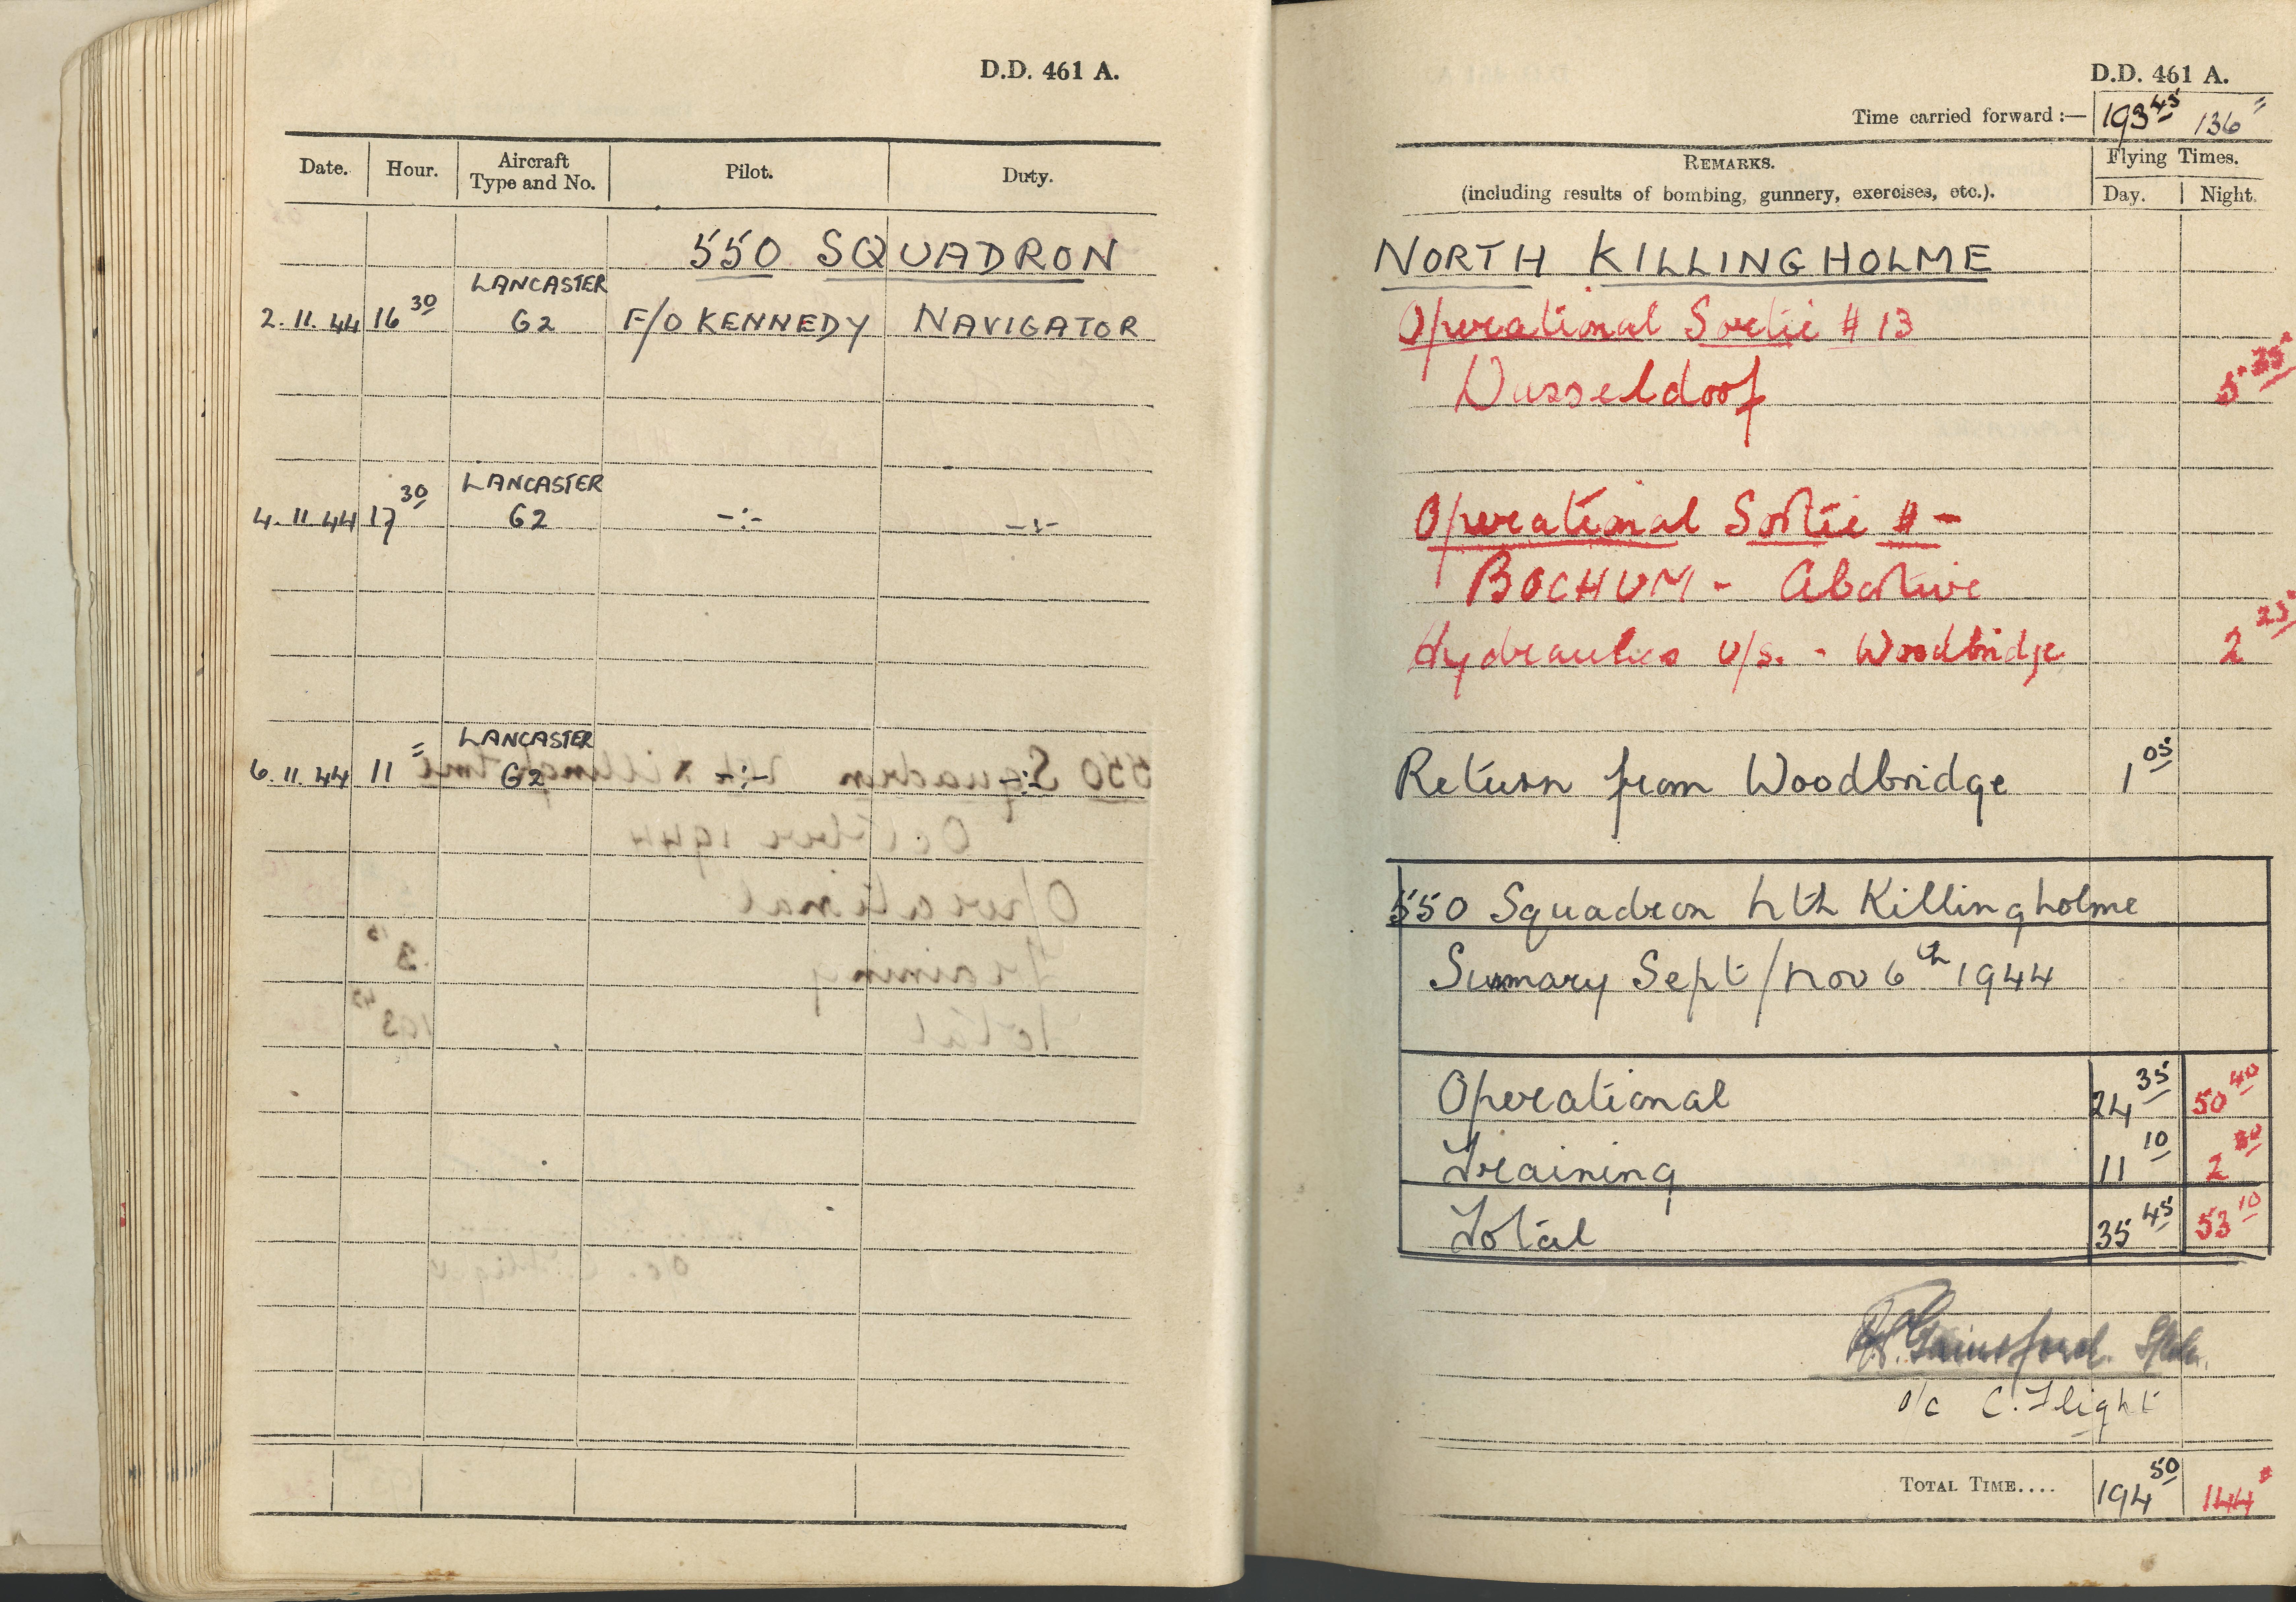 D.D. 461 A.
Date. Hour. Aircraft Type and No. Pilot. Duty.
550 SQUADRON
LANCASTER
2.11.44 16 30 G2 F/O KENNEDY NAVIGATOR
LANCASTER
4.11.44 17 30 G2 -:- -:-
LANCASTER
6.11.44 11 = G2 -:- -:-
D.D. 461 A.
Time carried forward :— 193 45 136 =
REMARKS. Flying Times.
(including results of bombing, gunnery, exercises, etc.). Day. Night.
NORTH KILLINGHOLME
Operational Sortie # 13
Dusseldoof 5
Operational Sortie # -
BOCHUM - Abortive
Hydraulics U/s. - Woodbridge 2 25
Return from Woodbridge 1 05
550 Squadron Nth Killingholme
Summary Sept/Nov 6th 1944
Operational 24 35 50 40
Training 11 10 2 30
Total 35 45 53 10
Gainsford. S/Ldr.
o/c C. Flight
TOTAL TIME.... 194 50 144